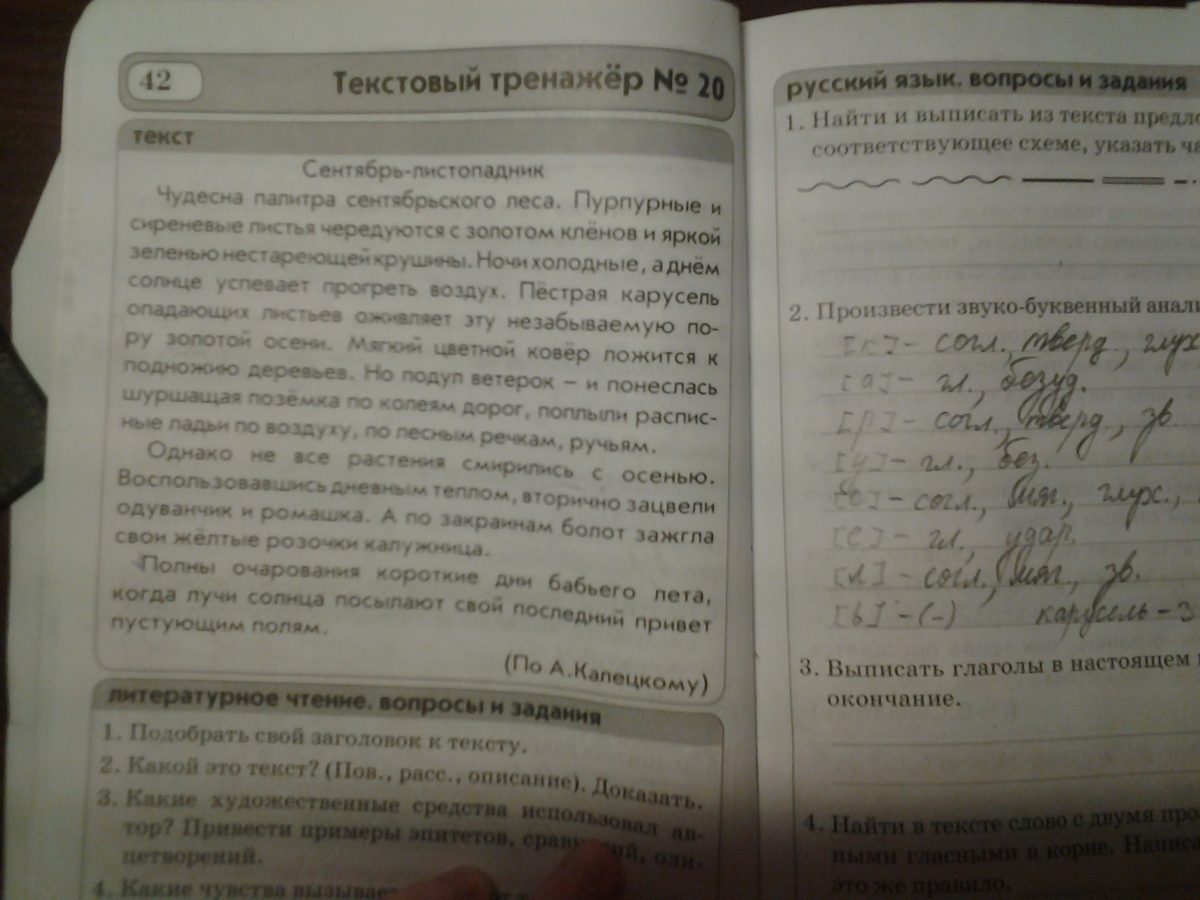 42
Текстовый тренажёр № 20
текст
Сентябрь-листопадник
Чудесна палитра сентябрьского леса. Пурпурные и
сиреневые листья чередуются с золотом клёнов и яркой
зеленью нестареющей крушины. Ночи холодные, а днём
солнце успевает прогреть воздух. Пёстрая карусель
опадающих листьев оживляет эту незабываемую по-
ру золотой осени. Мягкий цветной ковёр ложится к
подножию деревьев. Но подул ветерок – и понеслась
шуршащая позёмка по колеям дорог, поплыли распис-
ные ладьи по воздуху, по лесным речкам, ручьям.
Однако не все растения смирились с осенью.
Воспользовавшись дневным теплом, вторично зацвели
одуванчик и ромашка. А по закраинам болот зажгла
свои жёлтые розочки калужница.
Полны очарования короткие дни бабьего лета,
когда лучи солнца посылают свой последний привет
пустующим полям.
(По А.Калецкому)
литературное чтение. вопросы и задания
1. Подобрать свой заголовок к тексту.
2. Какой это текст? (Пов., расс., описание). Доказать.
3. Какие художественные средства использовал ав-
тор? Привести примеры эпитетов, оли-
цетворений.
4. Какие чувства
русский язык. вопросы и задания
1. Найти и выписать из текста предло
соответствующее схеме, указать ча
2. Произвести звуко-буквенный анали
[к] - согл., тверд., глух
[а] - гл., безуд.
[р] - согл., тверд., зв.
[у] - гл., без.
[с] - согл., мяг., глух.,
[е] - гл., удар.
[л] - согл., мяг., зв.
[ь] - (-) карусель - 3
3. Выписать глаголы в настоящем
окончание.
4. Найти в тексте слово с двумя про
ными гласными в корне. Написа
это же правило.